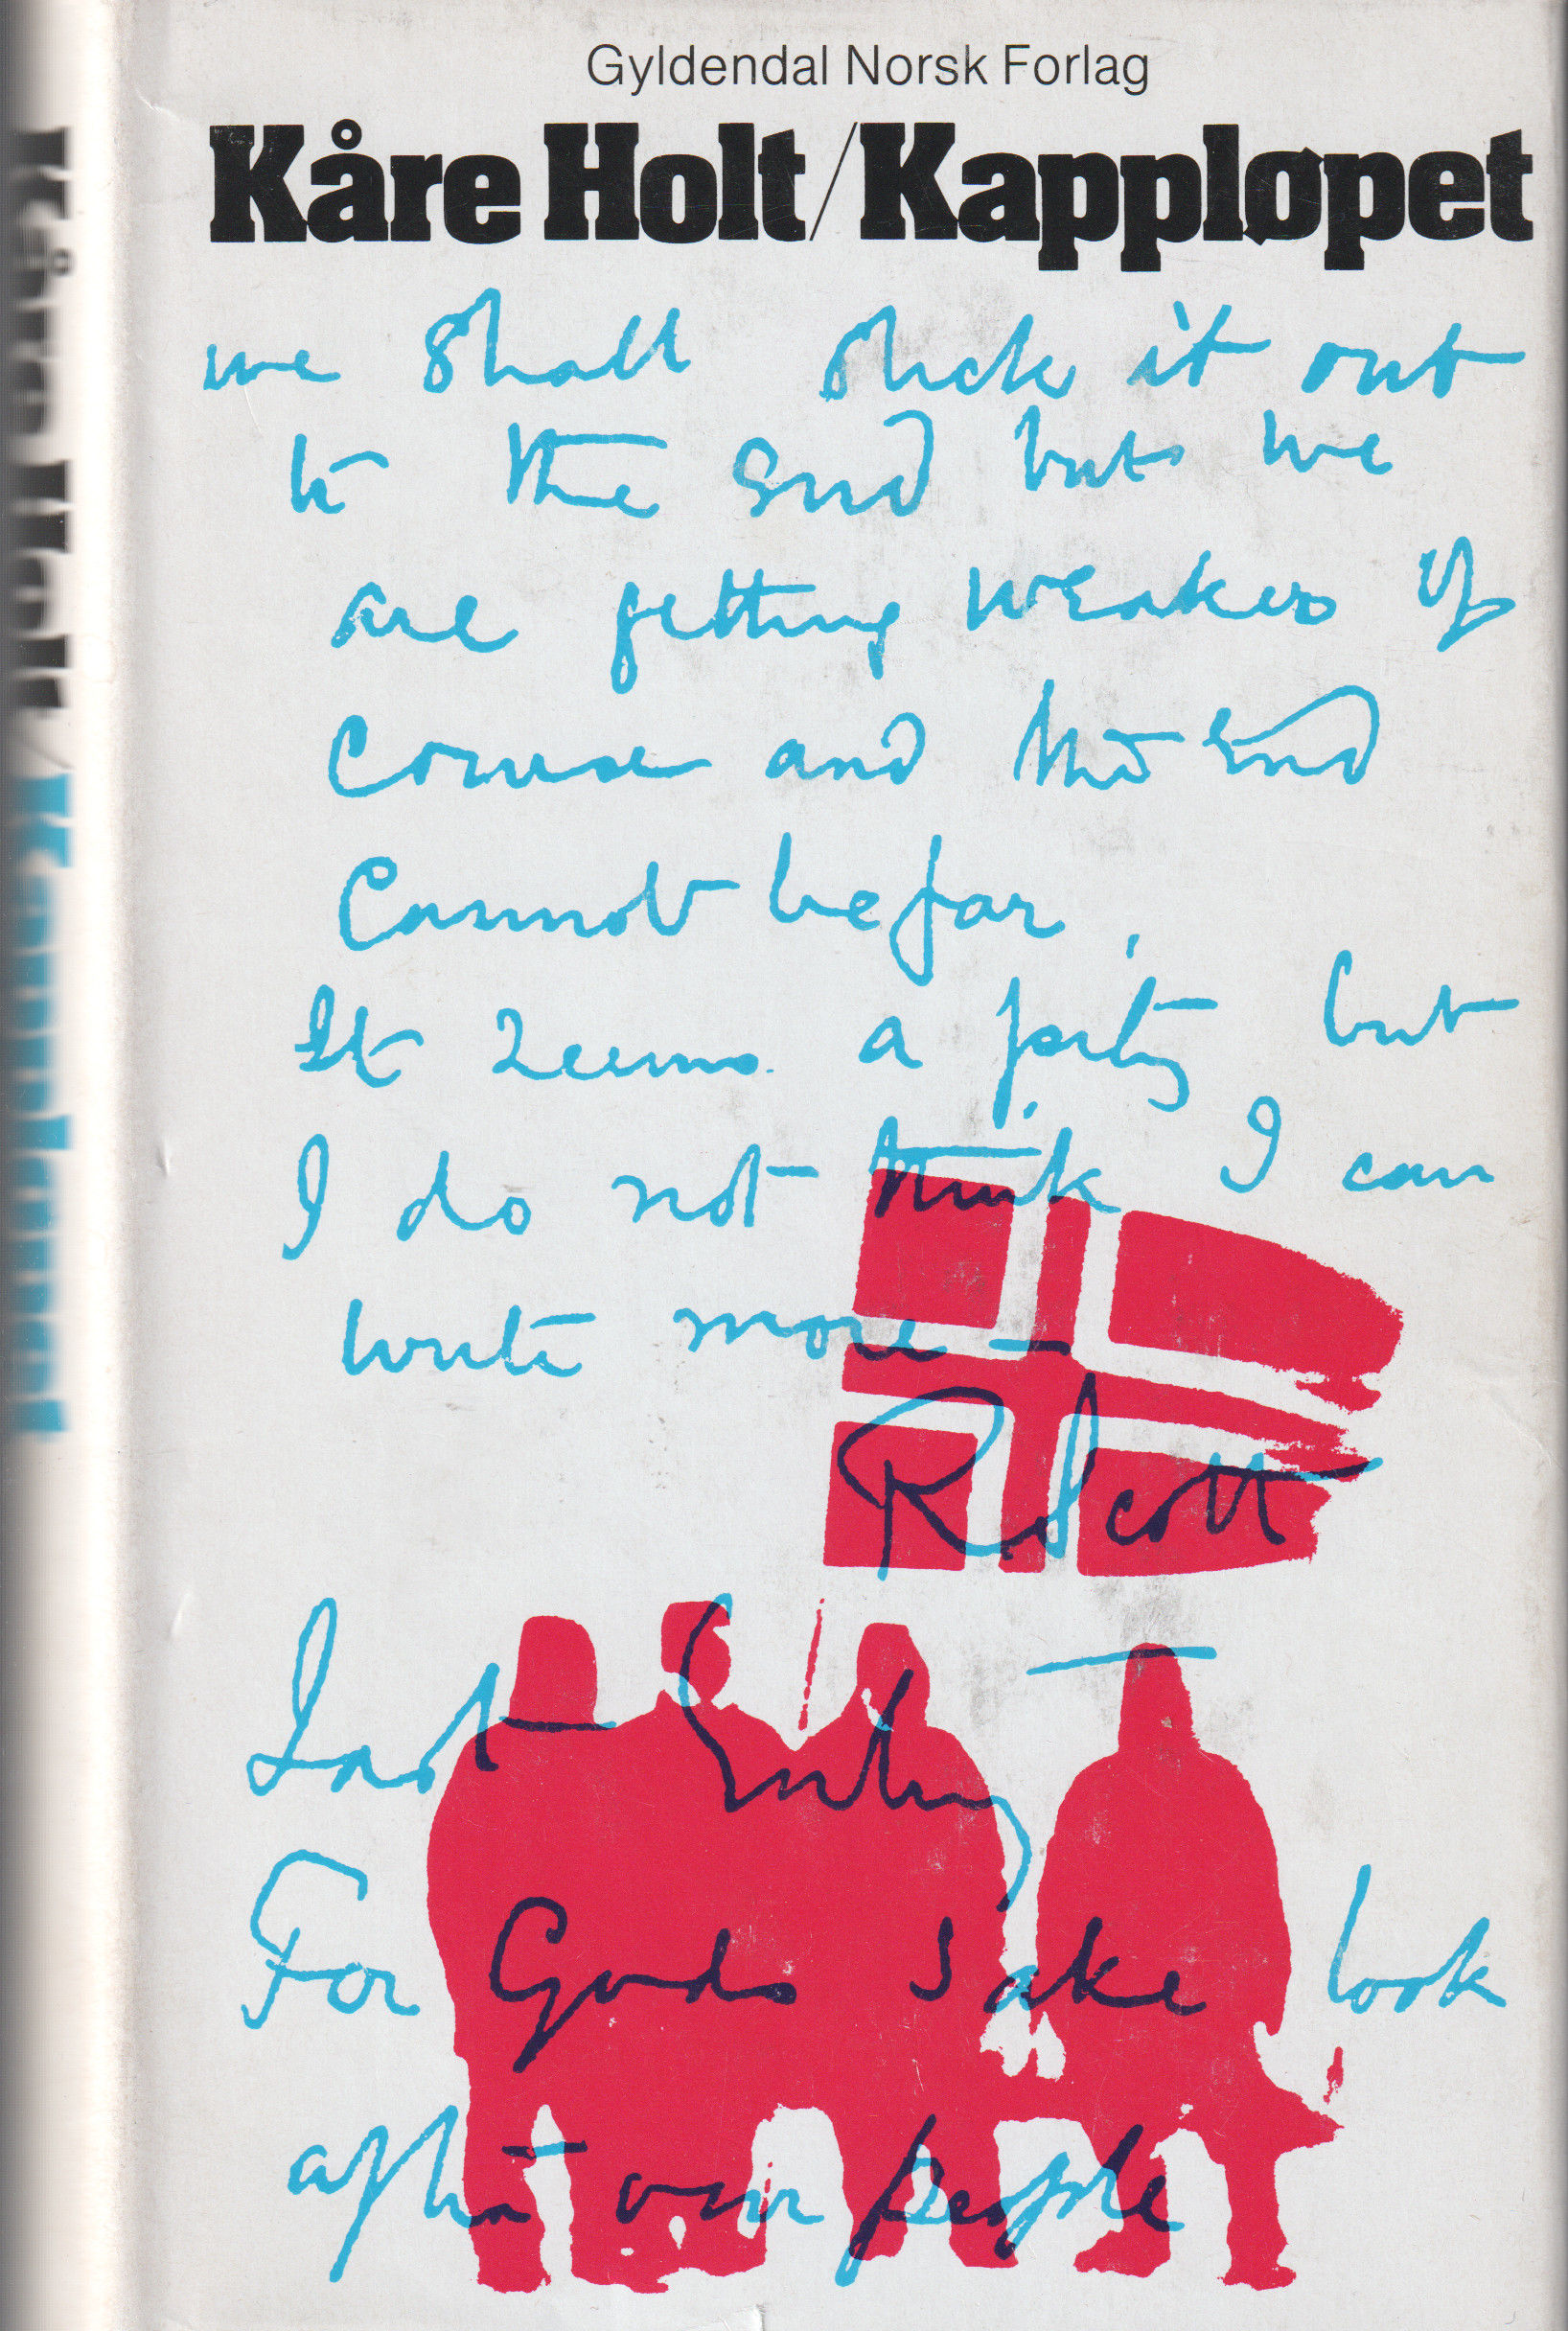 Gyldendal Norsk Forlag
Kåre Holt/Kappløpet
we shall stick it out
to the end but we
are getting weaker of
course and the end
cannot be far.
It seems a pity but
I do not think I can
write more –
R Scott
Last Entry
For Gods sake look
after our people
Kåre Holt/Kappløpet